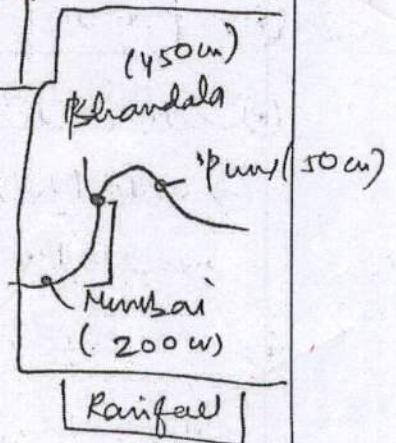 (450cm)
Bhandala
Pune (50 cm)
Mumbai
(200 cm)
Rainfall